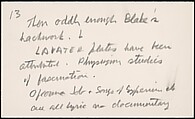 13
Then oddly enough Blake's
hackwork.
LAVATER plates have been
attributed. Physiogn studies
of fascination.
Job & Songs of Experience etc
are all lyric non documentary